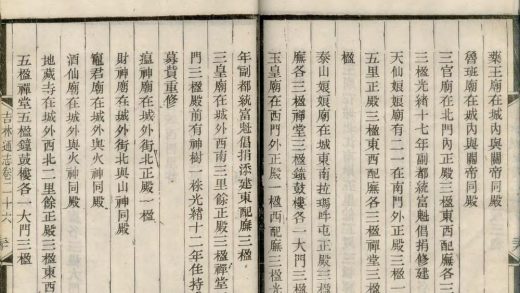 藥王廟在城內與關帝同殿
魯班廟在城內與關帝同殿
三官廟在北門內正殿三楹東西配廡各三楹
三楹光緒十七年副都統富魁倡捐修建
天仙娘娘廟有二一在南門外正殿三楹
五里正殿三楹東西配廡各三楹禪堂三
楹
泰山娘娘廟在城東南拉瑪屯正殿三楹
廡各三楹禪堂三楹鐘鼓樓各一大門三
玉皇廟在西門外正殿三楹西配廡三楹光
年副都統富魁倡捐添建東配廡三楹
三皇廟在城外西南三里餘正殿三楹禪堂
門三楹殿前有神樹一株光緒十二年住持
募貲重修
瘟神廟在城外街北正殿一楹
財神廟在城外街北與山神同殿
竈君廟在城外與火神同殿
酒仙廟在城外與火神同殿
地藏寺在城外西北二里餘正殿三楹東西
五楹禪堂五楹鐘鼓樓各一大門三楹
吉林通志卷二十六